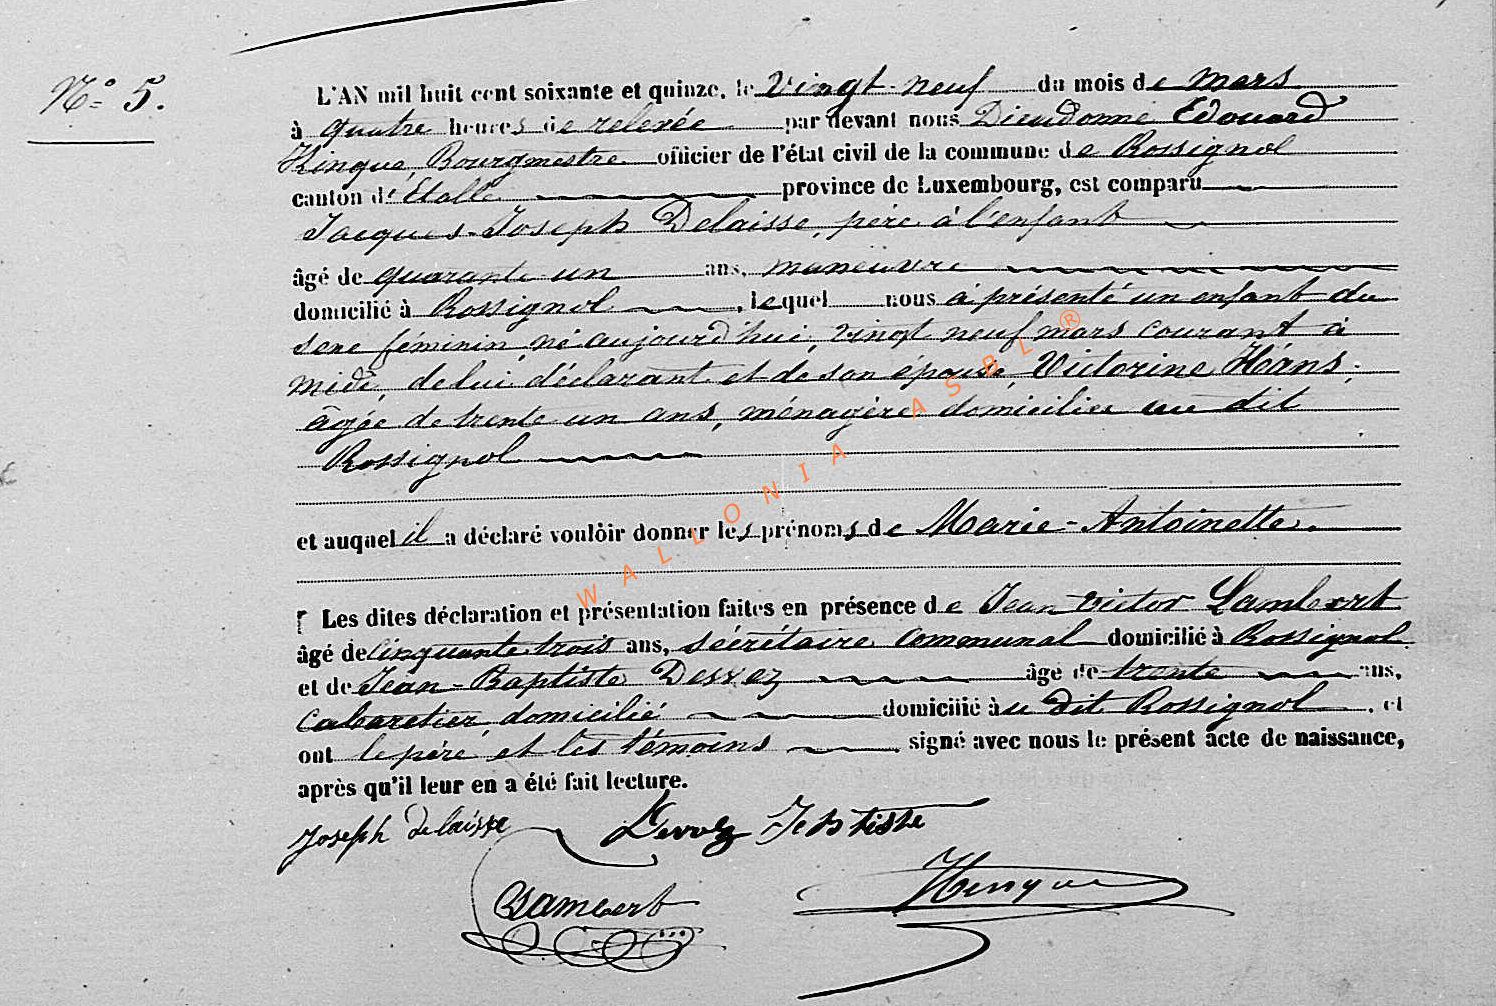 N° 5.
L'AN mil huit cent soixante et quinze, le vingt-neuf du mois de mars
à quatre heures de relevée par devant nous Dieudonné Edouard
Hinque, Bourgmestre officier de l'état civil de la commune de Rossignol
canton d'Etalle province de Luxembourg, est comparu
Jacques-Joseph Delaisse, père à l'enfant
âgé de quarante un ans, manœuvre
domicilié à Rossignol, lequel nous à présenté un enfant du
sexe féminin, né aujourd'hui, vingt neuf mars courant à
midi, de lui déclarant et de son épouse, Victorine Hans,
âgée de trente un ans, ménagère domiciliée au dit
Rossignol
et auquel il a déclaré vouloir donner les prénoms de Marie-Antoinette.
Les dites déclaration et présentation faites en présence de Jean Victor Lambert
âgé de cinquante trois ans, secrétaire communal domicilié à Rossignol
et de Jean-Baptiste âgé de trente ans,
cabaretier domicilié domicilié au dit Rossignol, et
ont le père et les témoins signé avec nous le présent acte de naissance,
après qu'il leur en a été fait lecture.
Joseph delaisse
Lambert
WALLONIA ASBL ®